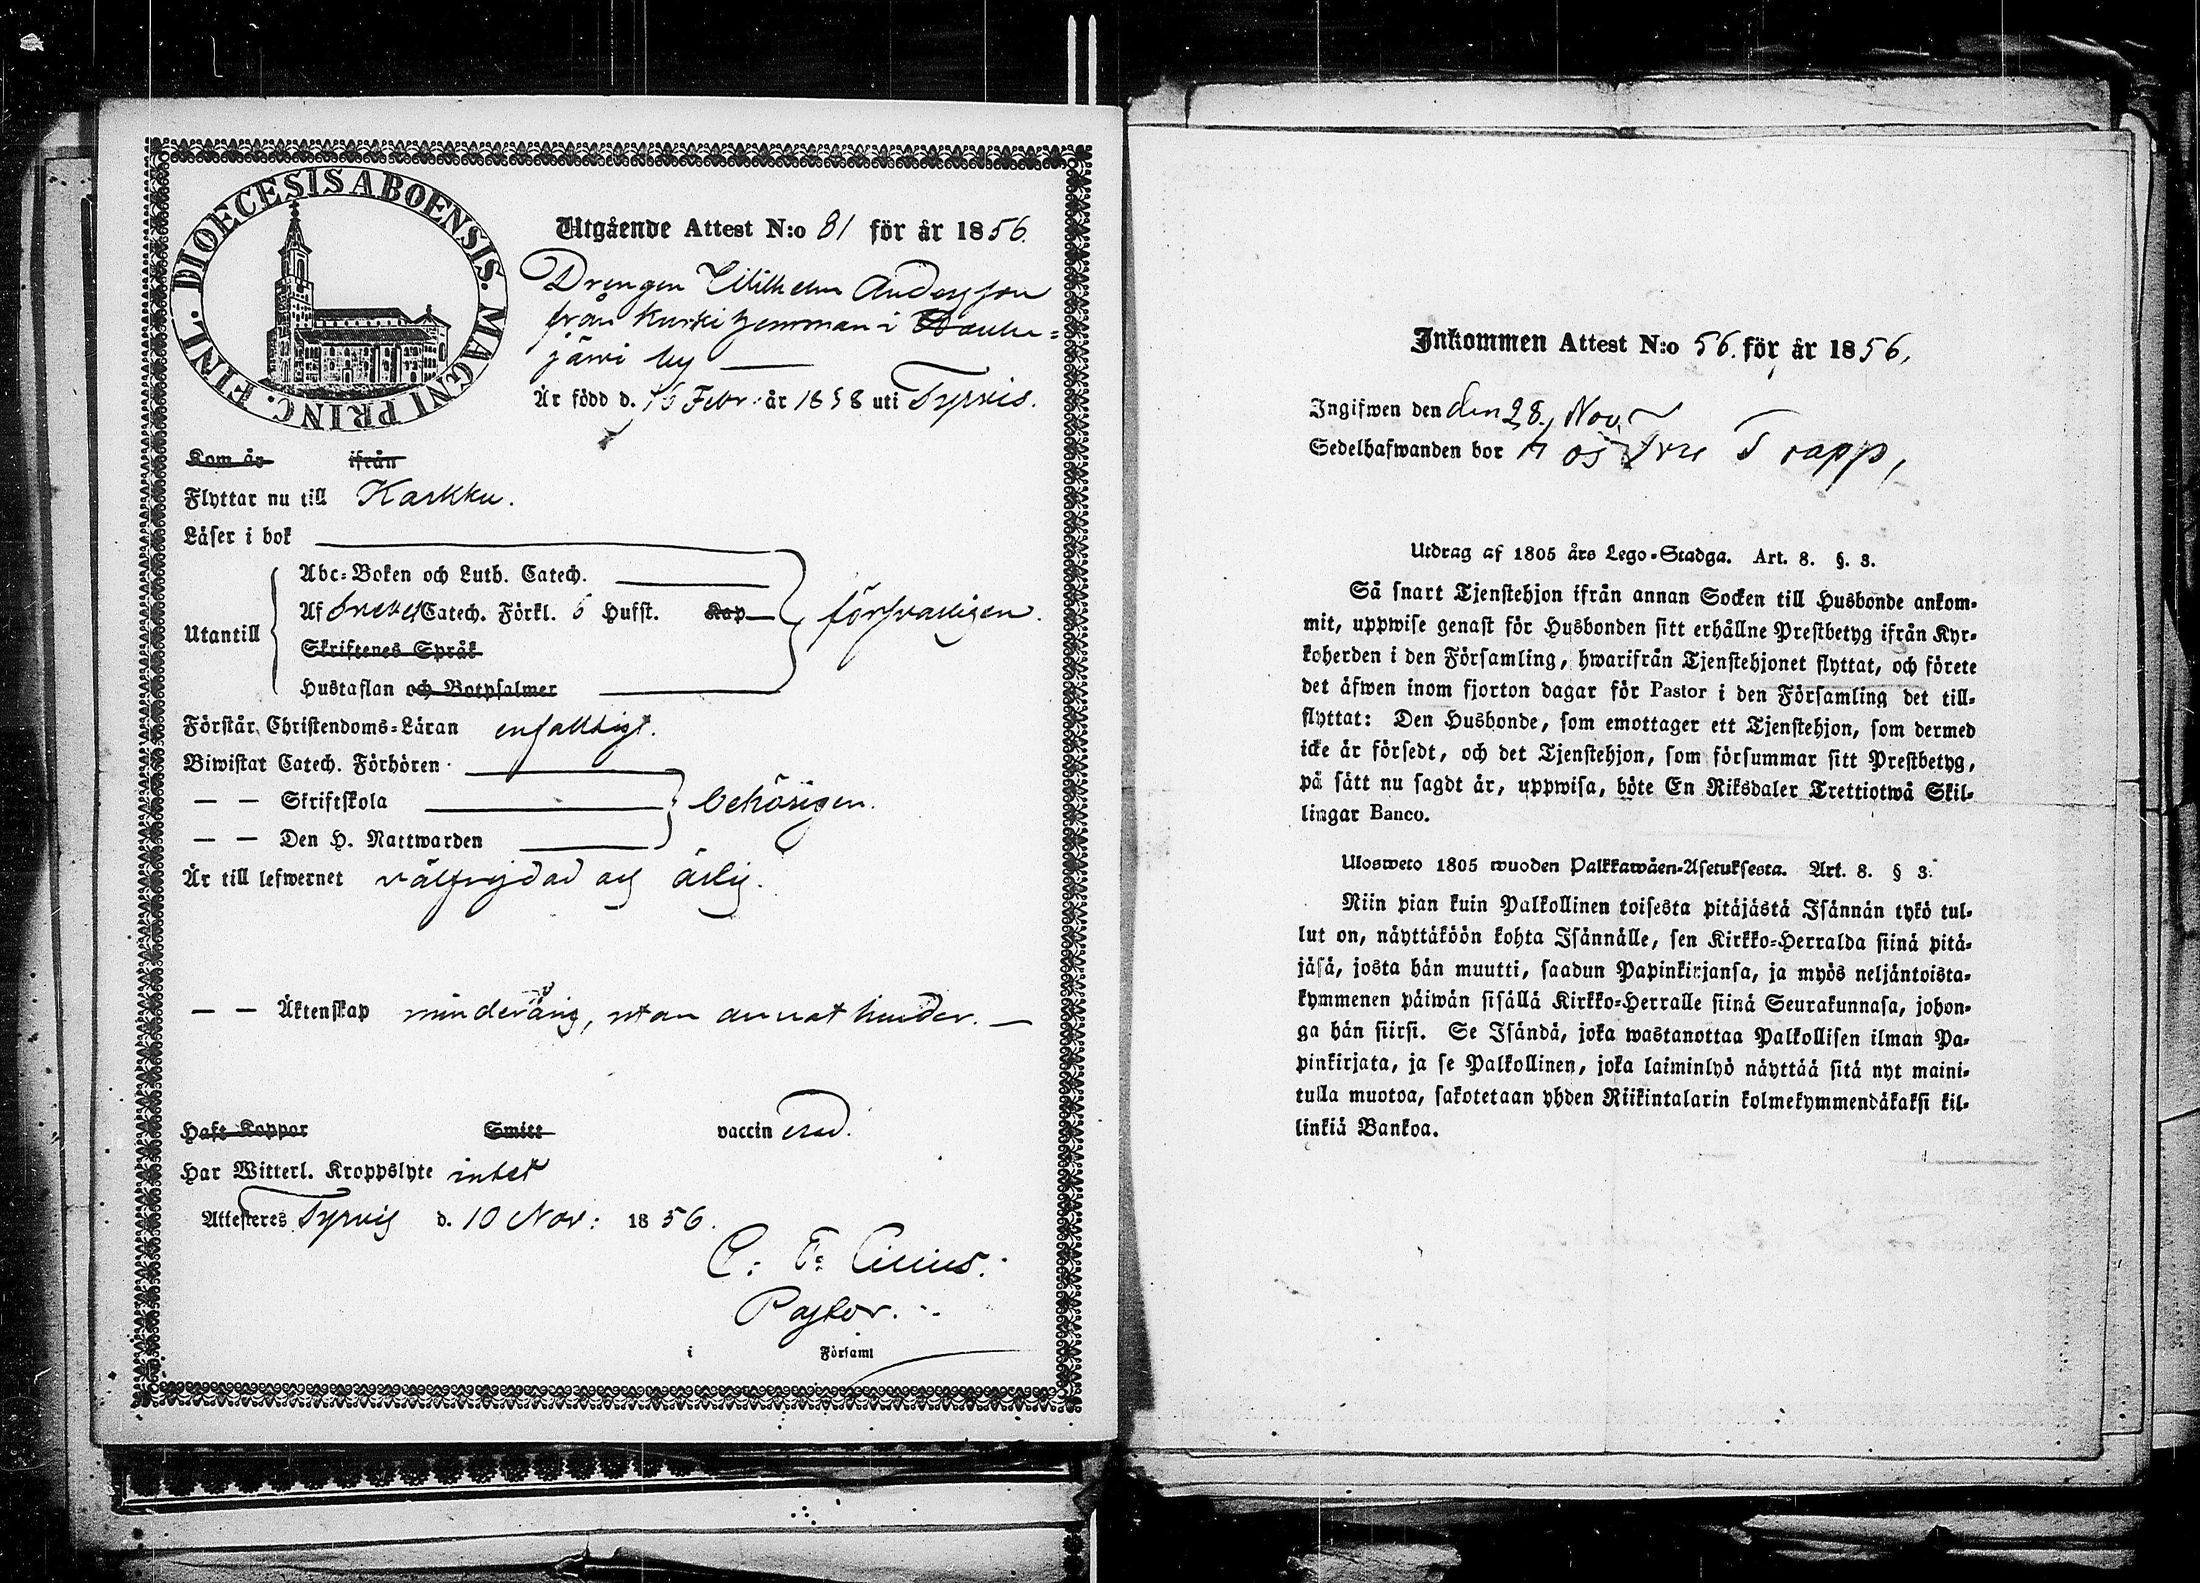 DIOECESIS ABOENSIS. MAGNI PRINC. FINL.
Utgående Attest N:o 81 för år 1856.
Drengen Wilhelm Andersson
från Kurki hemman i
järvi by
Är född d. 16 Febr. år 1838 uti Tyrvis.
Kom år ifrån
Flyttar nu till Karkku.
Läser i bok
Abc-Boken och Luth. Catech.
Utantill
Af Catech. Förkl. 5 Hufst. Kap
försvarligen.
Skriftenes Språk
Hustaflan och Botpsalmer
Förstår Christendoms-Läran enfaldigt.
Biwistat Catech. Förhören
— — Skriftskola
behörigen.
— — Den H. Nattwarden
Är till lefwernet välfrejdad och ärlig.
— — Äktenskap minderårig, utan annat hinder. —
Haft Koppor Smitt vaccinerad.
Har Witterl. Kroppslyte intet
Attesteres Tyrvis d. 10 Nov: 1856.
C: F:
Pastor.
i Församl
Inkommen Attest N:o 56. för år 1856,
Ingifwen den den 28. Nov.
Sedelhafwanden bor Hos Trapp,
Utdrag af 1805 års Lego-Stadga. Art. 8. §. 3.
Så snart Tjenstehjon ifrån annan Socken till Husbonde ankom-
mit, uppwise genast för Husbonden sitt erhållne Prestbetyg ifrån Kyr-
koherden i den Församling, hwarifrån Tjenstehjonet flyttat, och förete
det äfwen inom fjorton dagar för Pastor i den Församling det till-
flyttat: Den Husbonde, som emottager ett Tjenstehjon, som dermed
icke är försedt, och det Tjenstehjon, som försummar sitt Prestbetyg,
på sätt nu sagdt är, uppwisa, böte En Riksdaler Trettiotwå Skil-
lingar Banco.
Ulosweto 1805 wuoden Palkkawäen-Asetuksesta. Art. 8. § 3.
Niin pian kuin Palkollinen toisesta pitäjästä Isännän tykö tul-
lut on, näyttäköön kohta Isännälle, sen Kirkko-Herralda siinä pitä-
jäsä, josta hän muutti, saadun Papinkirjansa, ja myös neljäntoista-
kymmenen päiwän sisällä Kirkko-Herralle siinä Seurakunnasa, johon-
ga hän siirsi. Se Isändä, joka wastanottaa Palkollisen ilman Pa-
pinkirjata, ja se Palkollinen, joka laiminlyö näyttää sitä nyt maini-
tulla muotoa, sakotetaan yhden Riikintalarin kolmekymmendäkaksi kil-
linkiä Bankoa.